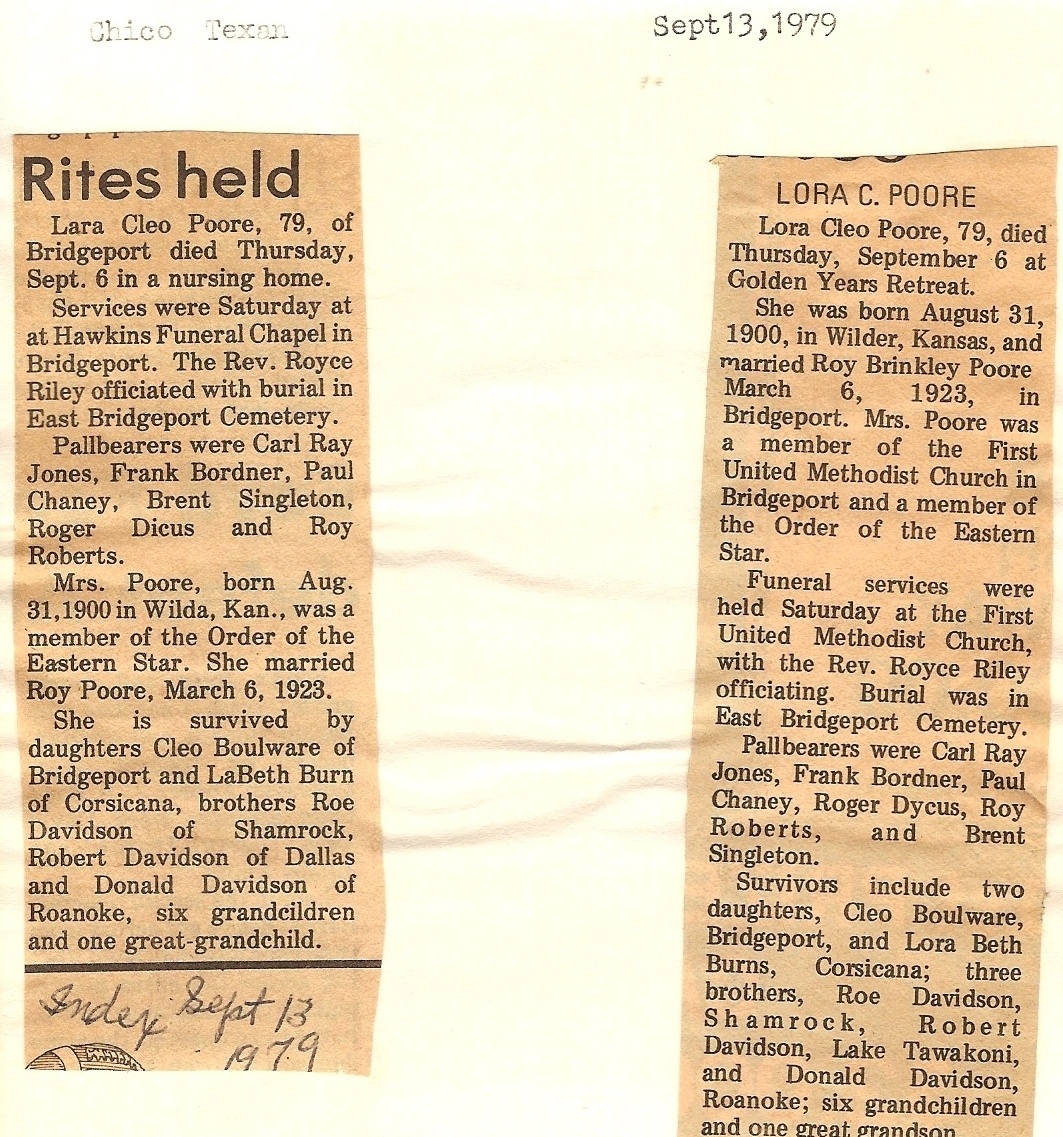 Chico Texan
Sept13,1979
Rites held
Lara Cleo Poore, 79, of
Bridgeport died Thursday,
Sept. 6 in a nursing home.
Services were Saturday at
at Hawkins Funeral Chapel in
Bridgeport. The Rev. Royce
Riley officiated with burial in
East Bridgeport Cemetery.
Pallbearers were Carl Ray
Jones, Frank Bordner, Paul
Chaney, Brent Singleton,
Roger Dicus and Roy
Roberts.
Mrs. Poore, born Aug.
31,1900 in Wilda, Kan., was a
member of the Order of the
Eastern Star. She married
Roy Poore, March 6, 1923.
She is survived by
daughters Cleo Boulware of
Bridgeport and LaBeth Burn
of Corsicana, brothers Roe
Davidson of Shamrock,
Robert Davidson of Dallas
and Donald Davidson of
Roanoke, six grandcildren
and one great-grandchild.
Index Sept 13
1979
LORA C. POORE
Lora Cleo Poore, 79, died
Thursday, September 6 at
Golden Years Retreat.
She was born August 31,
1900, in Wilder, Kansas, and
married Roy Brinkley Poore
March 6, 1923, in
Bridgeport. Mrs. Poore was
a member of the First
United Methodist Church in
Bridgeport and a member of
the Order of the Eastern
Star.
Funeral services were
held Saturday at the First
United Methodist Church,
with the Rev. Royce Riley
officiating. Burial was in
East Bridgeport Cemetery.
Pallbearers were Carl Ray
Jones, Frank Bordner, Paul
Chaney, Roger Dycus, Roy
Roberts, and Brent
Singleton.
Survivors include two
daughters, Cleo Boulware,
Bridgeport, and Lora Beth
Burns, Corsicana; three
brothers, Roe Davidson,
Shamrock, Robert
Davidson, Lake Tawakoni,
and Donald Davidson,
Roanoke; six grandchildren
and one great grandson.